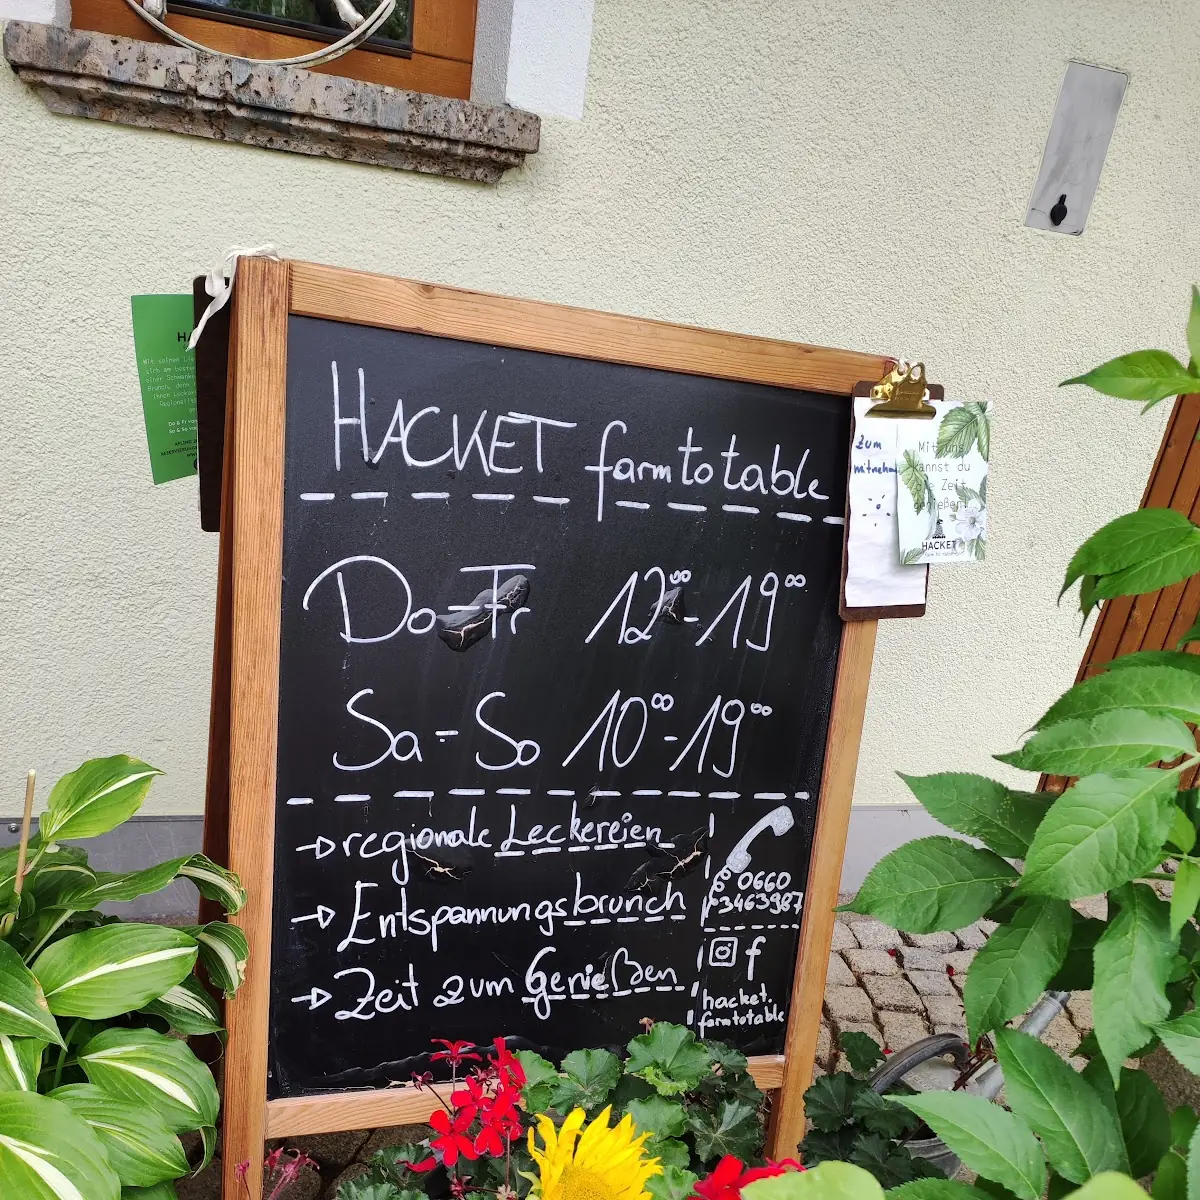 HACKET farmtotable
Do-Fr 12⁰⁰-19⁰⁰
Sa-So 10⁰⁰-19⁰⁰
→ regionale Leckereien
→ Entspannungsbrunch
→ Zeit zum Genießen
0660
3463987
f
hacket.
farmtotable
Zum
Mit uns
kannst du
Zeit
genießen
HACKET